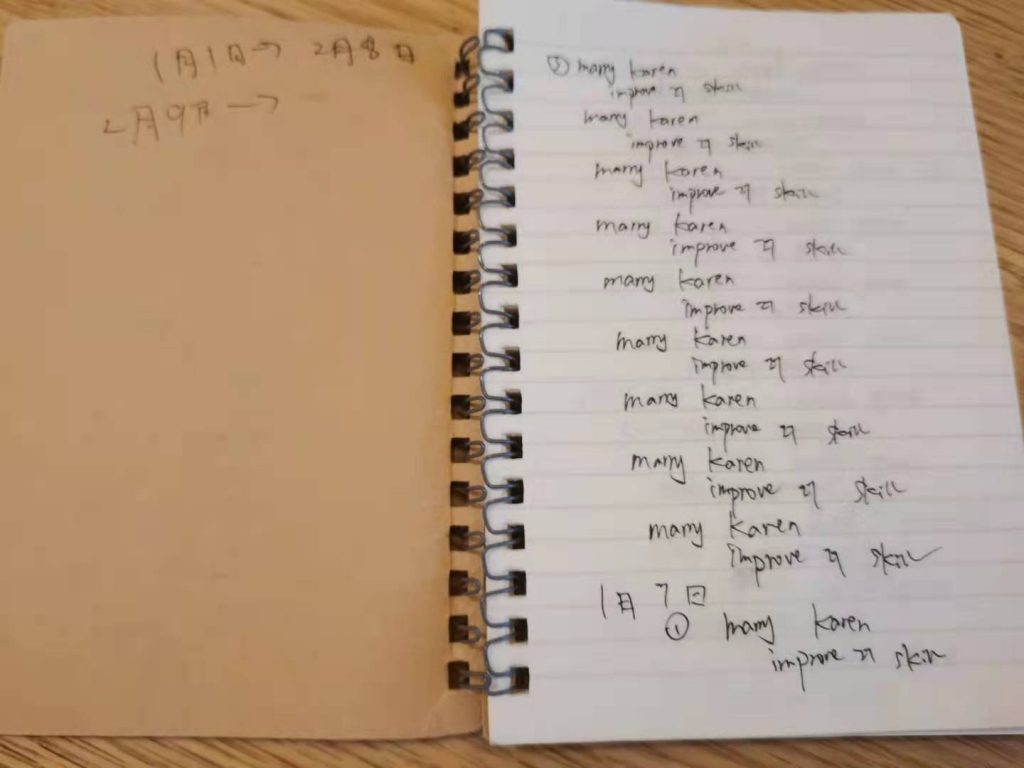 1月1日→2月8日
2月9日→
② marry karen
improve 才 skill
marry karen
improve 才 skill
marry karen
improve 才 skill
marry karen
improve 才 skill
marry karen
improve 才 skill
marry karen
improve 才 skill
marry karen
improve 才 skill
marry karen
improve 才 skill
marry karen
improve 才 skill
1月7日
① marry karen
improve 才 skill